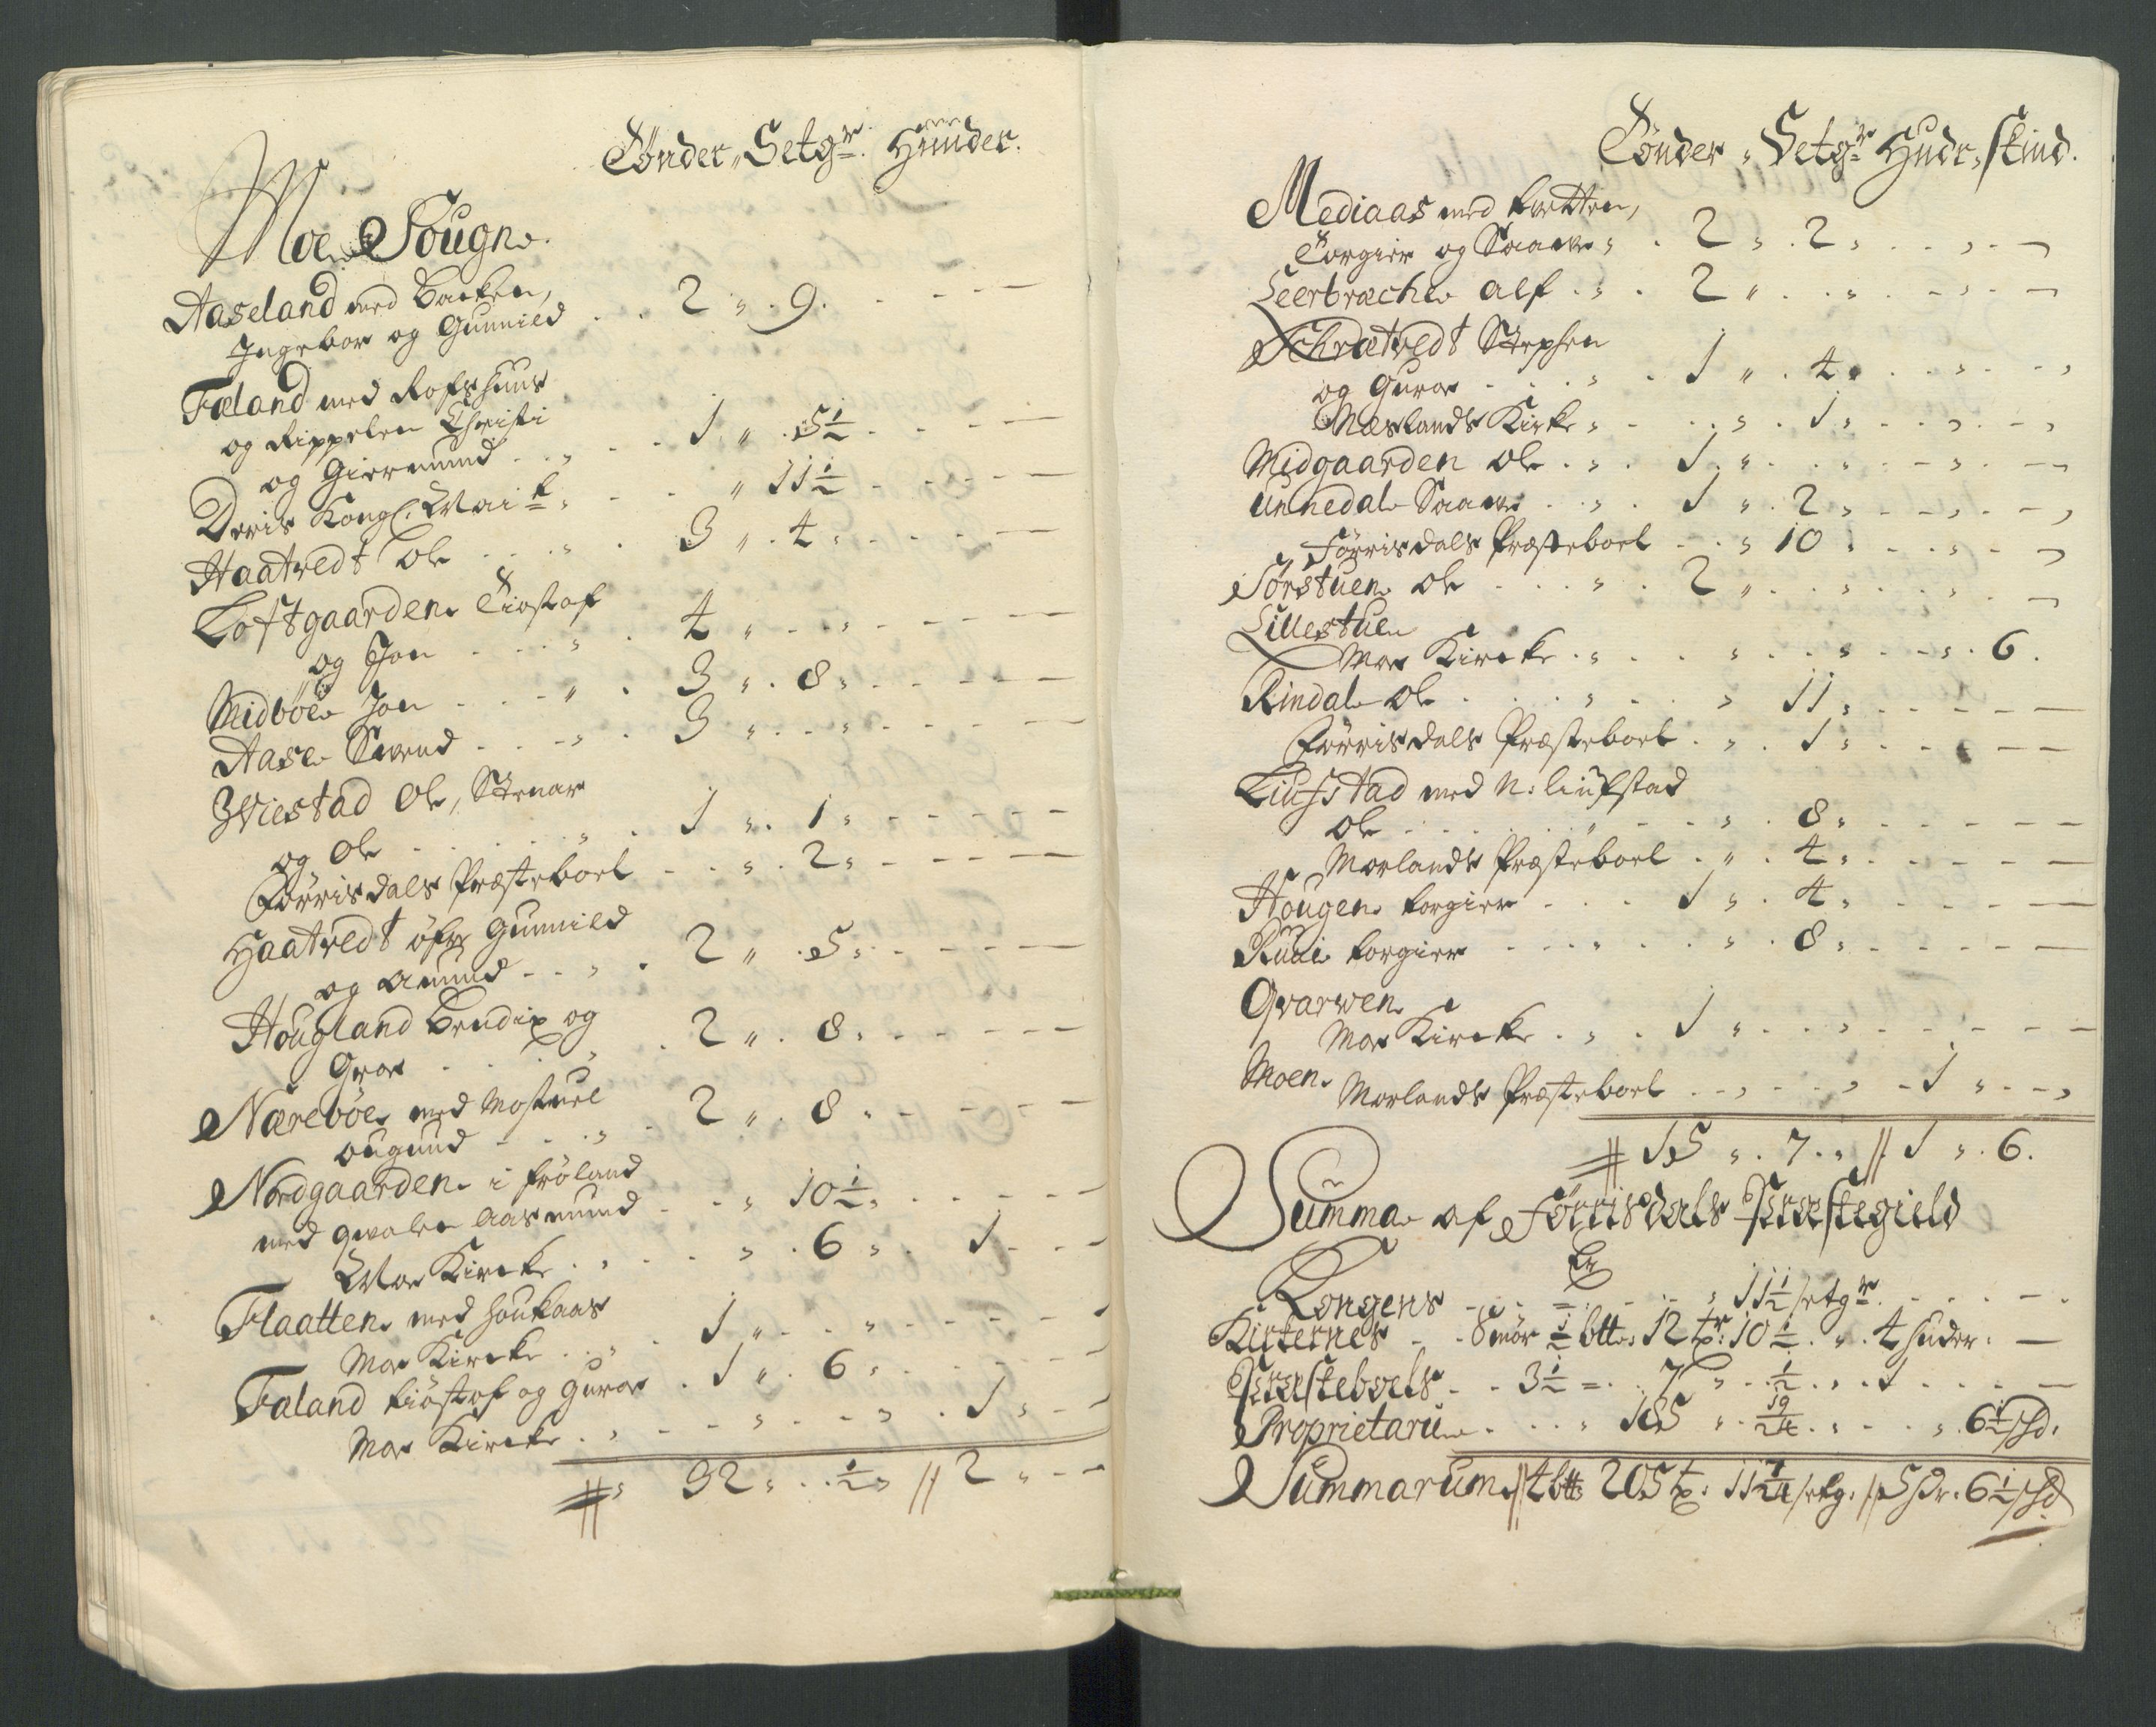 Tönder „ Setgr. Huuder.
Moe Sougn.
Aaseland med Backen,
Ingebor og Gunnild . . 2 „ . 9. - - - —
Fæland med Rofshuus
og Rippelen Christi
og Giermund . . „ - . 1 „ . 5½ . - - - —
Deris Kongl: Mai - - „ 11½ - - - —
Haatvedt Ole . . . „ . 3 „ . 4 „ - - - —
Loftgaarden Tiostof
og Jon - . . . „ . 4 „ - . „ - - - —
Midböe Jon - . - „ . 3 „ . 8 „ - - - —
Aase Svend - . . - „ . 3 „ . . „ . - - - —
Wiestad Ole, Stenar
og Ole . . . . . „ . 1 „ . 1 „ - - - - —
Förrisdals Præsteboel - . . „ . 2 „ - - - —
Haatvedt öfre Gunnild
og Amund - . . „ . 2 „ . 5 „ . - - - —
Hougland Bendix og
Groe . . . . „ . 2 „ . 8 „ . - - - —
Næreböe med Mostuel
Ougund - . . . „ . 2 „ . 8 „ - - - —
Nordgaarden i fröland
med qvalen Aasmund - . . „ 10½ „ . . - - —
Moe Kircke . . . . „ . 6 „ . 1 - . —
Flaatten med Houkaas
Moe Kircke . . „ . 1 „ . . „ - - - -
Faland Tiöstof og Guroe . 1 „ . 6 „ . - - —
Moe Kircke . „ . - - „ . . - „ . 1 „ - —
„ 32 „ . . ½ „ // 2 „ - —
Tönder „ Setgr Hudr „ skind.
Mediaas med
Torgier og Saamen „ . 2 „ . 2 „ . . „ . —
Leerbræche Alf . „ . 2 „ . . „ . - „ . —
Schrætvedt Stephen
og Guroe . . . . „ . 1 „ . 4 „ . . „ . . „
Næslands Kirke „ - . . „ . 1 „ - . „ . - „
Midgaarden Ole . „ . 1 „ . . . . - „ . - „
Unnedal Saamen . . „ . 1 „ . 2 „ - - „ . - „
Förrisdals Præsteboel - . „ 10 „ . . „ . -
Sörstuen Ole - . . „ . 2 „ . . „ . . „ . -
Lillestuen
Moe Kircke . „ . . „ . . „ . - „ . 6 .
Rindal Ole . . . . „ . . „ 11 „ . - - - —
Förrisdals Præsteboel . „ . 1 „ . - - —
Liufstad med N: liufstad
Ole - . . . . „ - - „ . 8 „ . - - —
Morlands Præsteboel . „ . 4 „ . - - —
Hougen Torgier . . . 1 „ . 4 „ - - - —
Ruui Torgier - . . „ . . „ . 8 „ . - - —
Qvarwen
Moe Kircke . „ . 1 „ . . „ - - - —
Moen
Morlands Præsteboel . . „ . . „ - 1 „ . - „
15 „ . 7 . „ // 1 „ . 6.
Summa af Förrisdals Præstegield
Er
Kongens - . . = . . - „ 11½ setgr. . . . - .
Kirkernes - . Smör ½ btt: 12 tr: 10½ . „ . 4 huder: —
Præsteboels - . 3½ = . . 7 „ . ½ . „ . 1 . . . —
Proprietarii . . . . „ 185 „ . 19/24 . „ . . „ . 6½ sd.
Summarum // 4 btt 205 t: 11 7/24 setg: // 5 hr. 6½ sd